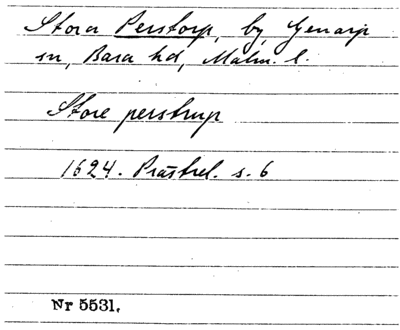 Stora Perstorp, by, Genarp
sn, Bara hd, Malm. l.
Store perstrup
1624. Prästrel. s. 6
Nr 5531.